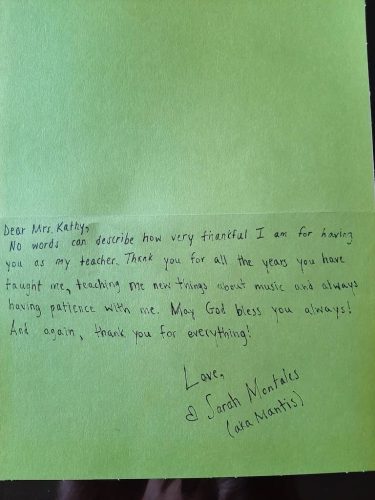 Dear Mrs. Kathy,
No words can describe how very thankful I am for having
you as my teacher. Thank you for all the years you have
taught me, teaching me new things about music and always
having patience with me. May God bless you always!
And again, thank you for everything!
Love,
Sarah Montales
(aka Mantis)